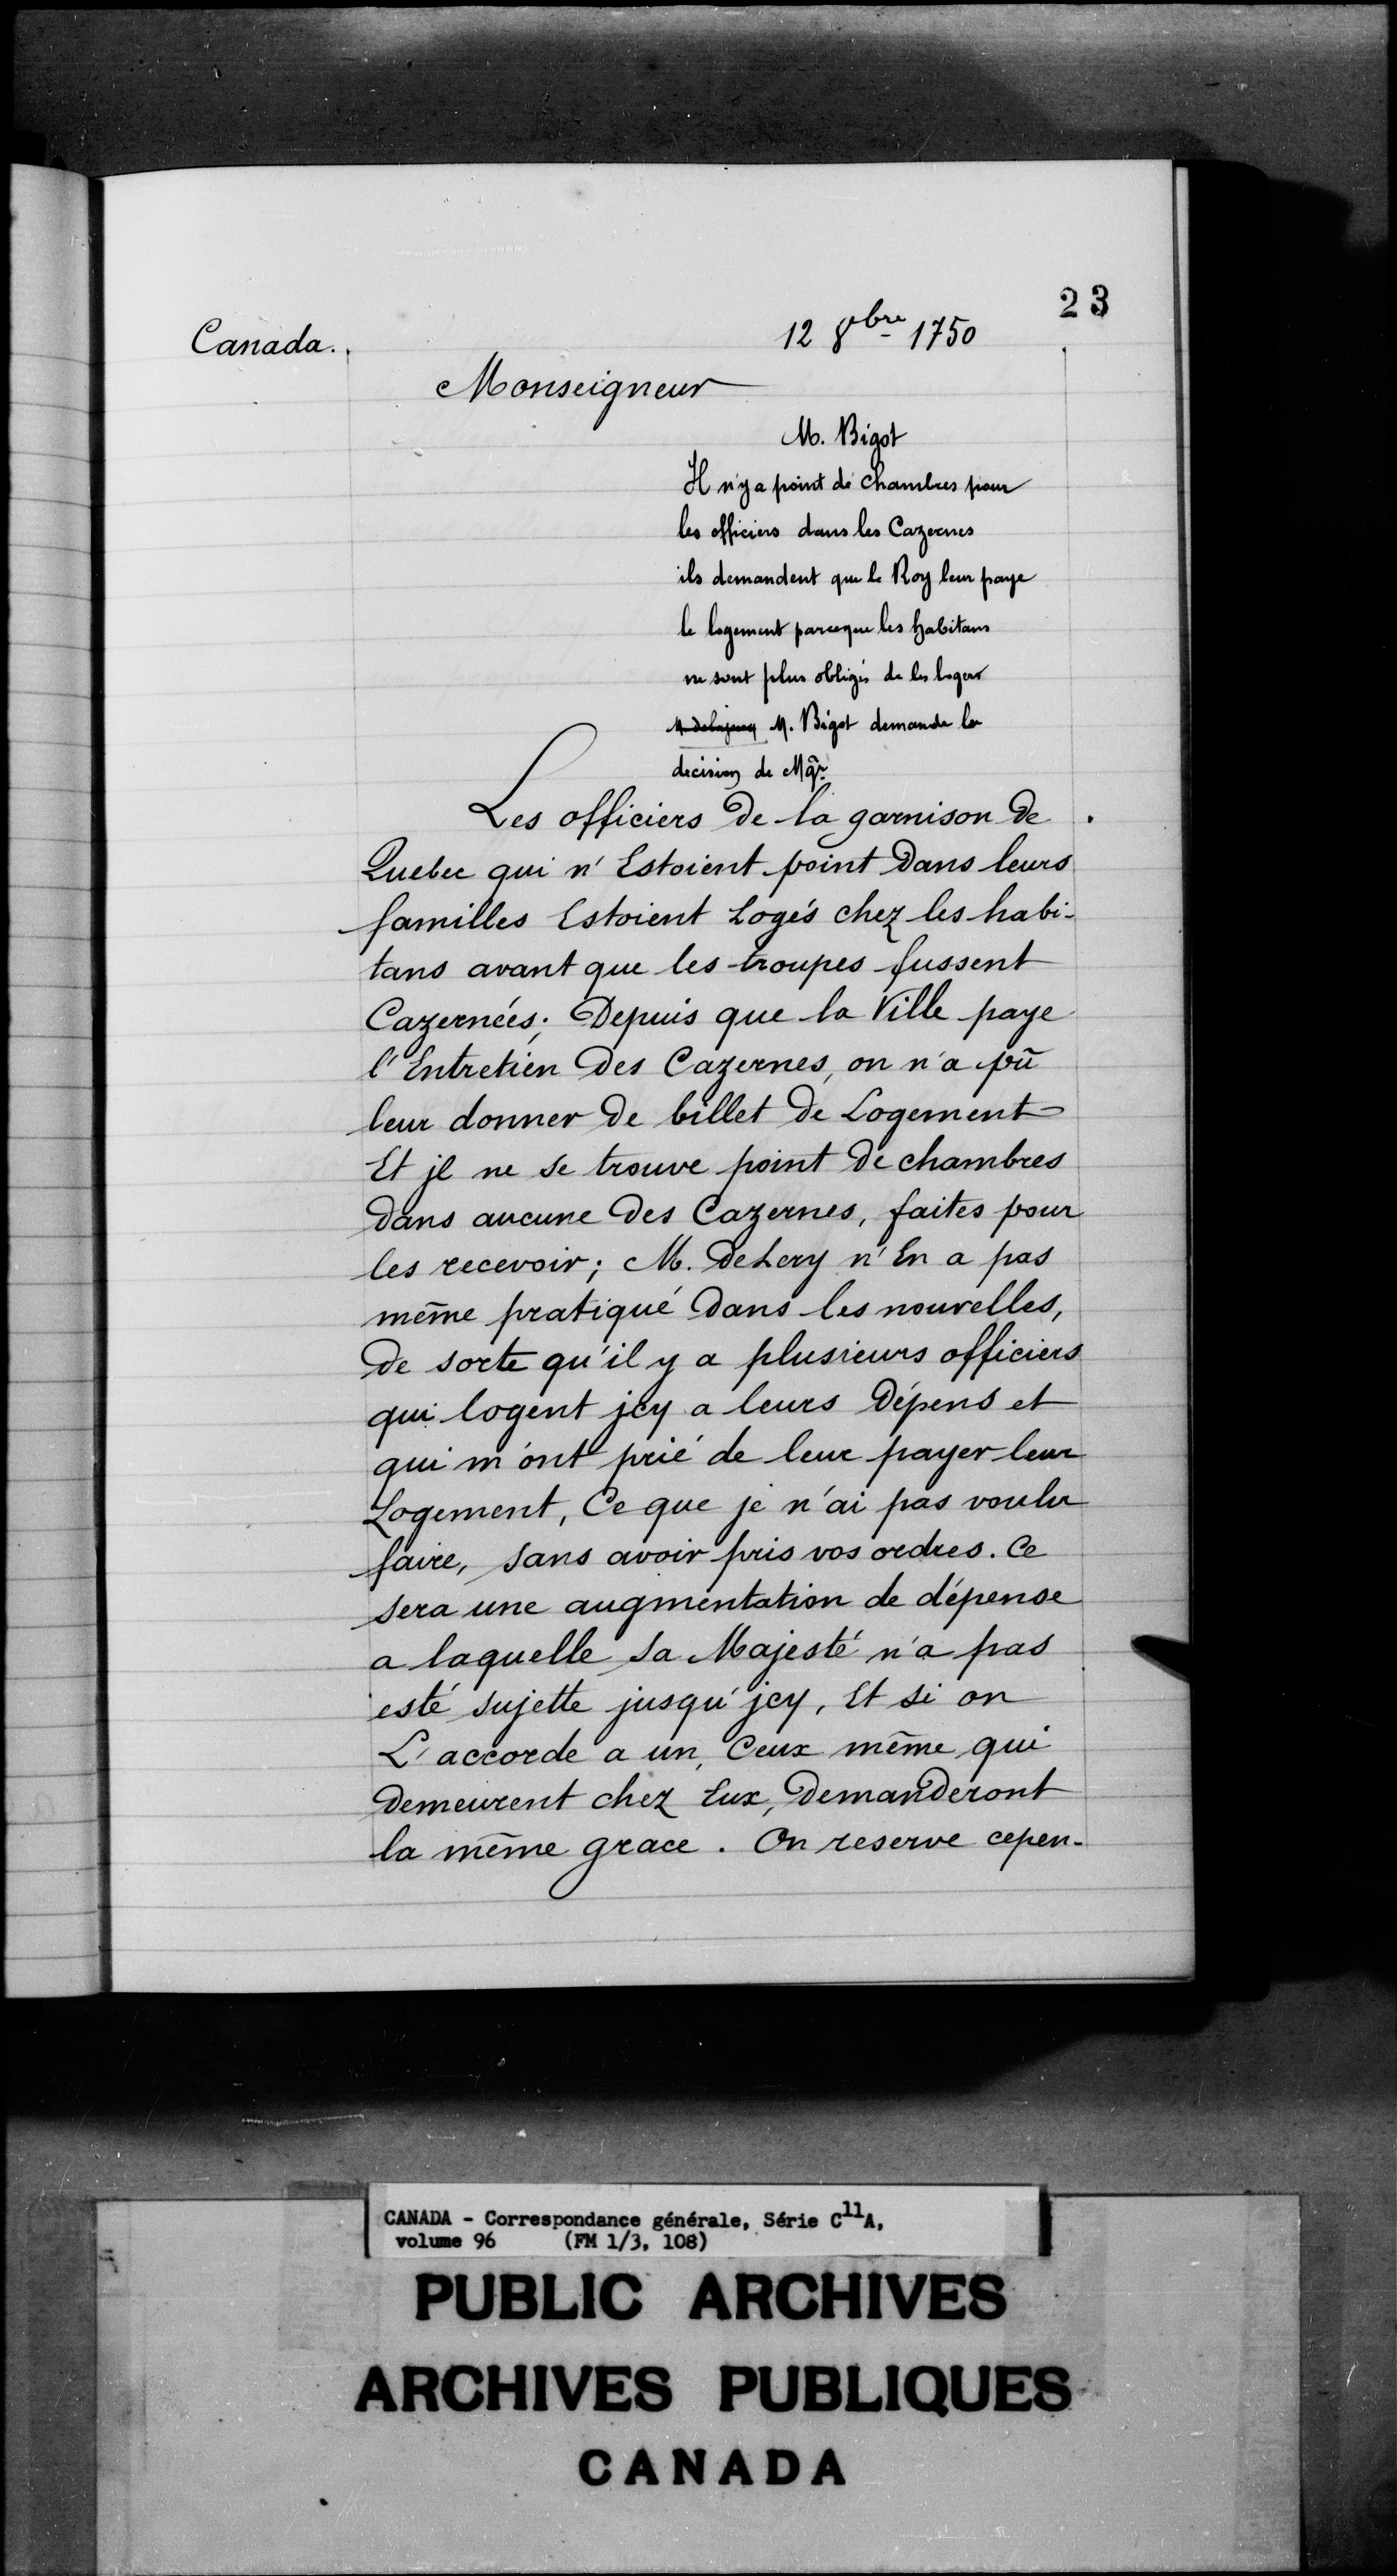 23
Canada.
12 8bre 1750
Monseigneur
M. Bigot
Il n'y a point de chambres pour
les officiers dans les Cazernes
ils demandent que le Roy leur paye
le logement parceque les habitans
ne sont plus obligés de les loger
M. Bigot demande la
decision de Mgr.
Les officiers De la garnison De
Quebec qui n'Estoient point Dans leurs
familles Estoient Logés chez les habi-
tans avant que les troupes fussent
Cazernées; Depuis que la Ville paye
l'Entretien Des Cazernes, on n'a pû
leur donner De billet De Logement
Et jl ne se trouve point De chambres
Dans aucune Des Cazernes, faites pour
les recevoir; M. DeLery n'En a pas
même pratiqué Dans les nouvelles,
De sorte qu'il y a plusieurs officiers
qui logent jcy a leurs Dépens et
qui m'ont prié de leur payer leur
Logement, Ce que je n'ai pas voulu
faire, sans avoir pris vos ordres. Ce
sera une augmentation de dépense
a laquelle sa Majesté n'a pas
esté sujette jusqu'jcy, Et si on
L'accorde a un, Ceux même qui
Demeurent chez Eux, DemanDeront
la même grace. On reserve cepen-
CANADA - Correspondance générale, Série C11A,
volume 96 (FM 1/3, 108)
PUBLIC ARCHIVES
ARCHIVES PUBLIQUES
CANADA